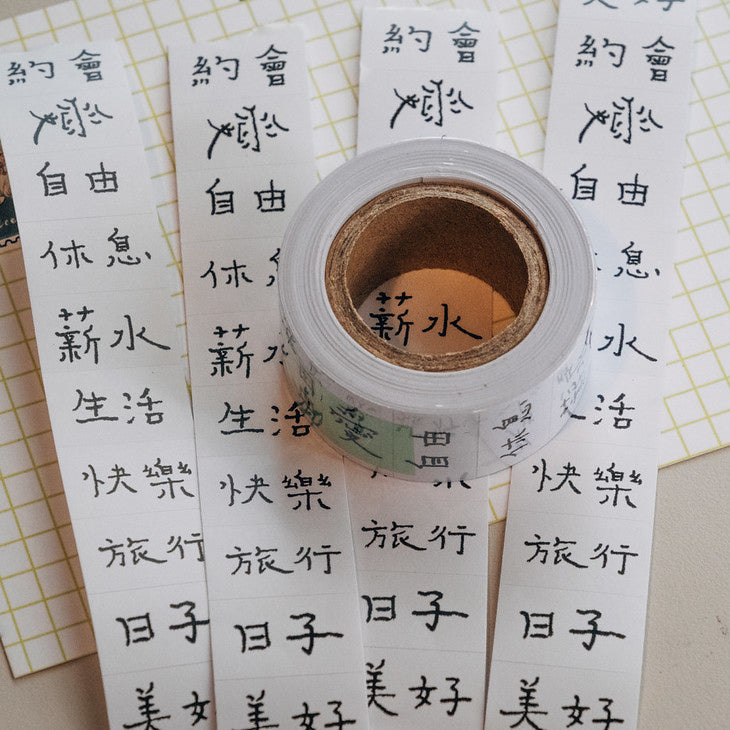 約會
愛
自由
休息
薪水
生活
快樂
旅行
日子
美
約會
愛
自由
休
薪水
生活
快樂
旅行
日子
美好
約會
愛
薪水
旅行
日子
美好
美好
約會
愛
自由
息
水
活
快樂
旅行
日子
美好